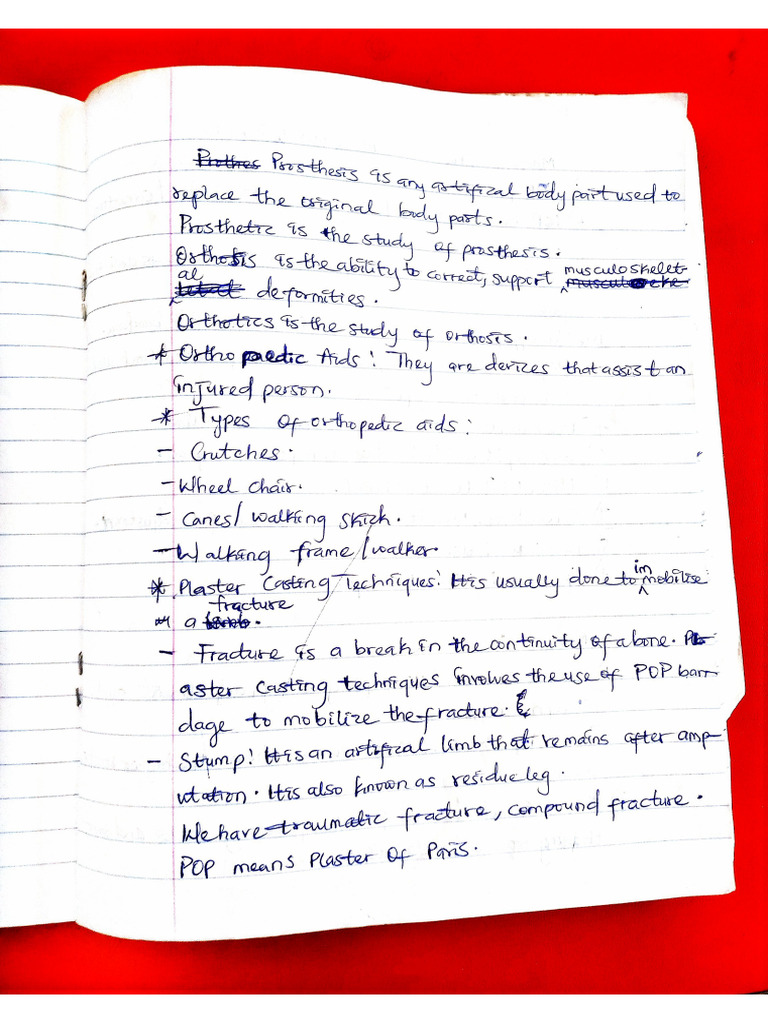 Prothes Prosthesis is any artifical body part used to
replace the original body parts.
Prosthetic is the study of prosthesis.
Orthosis is the ability to correct, support musculoskelet-
al deformities.
Orthotics is the study of orthosis.
* Orthopaedic Aids: They are devices that assist an
injured person.
* Types of orthopedic aids:
- Crutches.
- Wheel chair.
- Canes/walking stick.
- Walking frame/walker.
* Plaster Casting Techniques: It is usually done to immobilise
a fracture
- Fracture is a break in the continuity of a bone. Pl-
aster casting techniques involves the use of POP ban-
dage to mobilize the fracture.
- Stump: It is an artifical limb that remains after amp-
utation. It is also known as residue leg.
We have traumatic fracture, compound fracture.
POP means Plaster Of Paris.